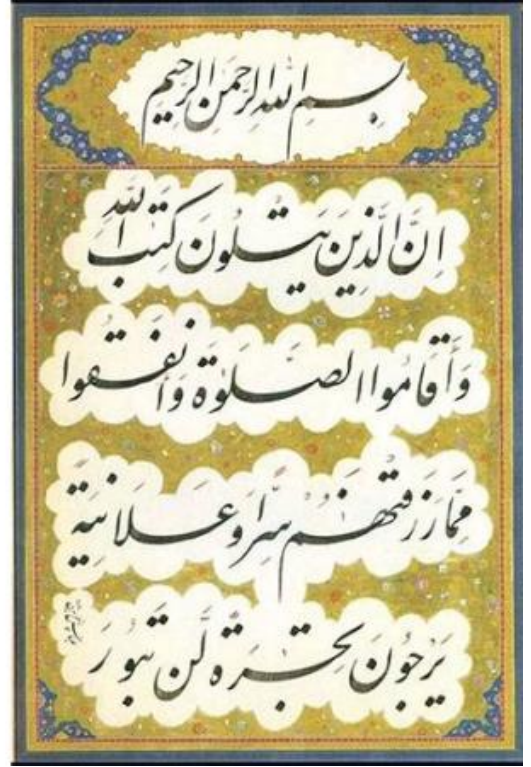 بسم الله الرحمن الرحيم
اِنَّ الَّذينَ يَتْلُونَ كِتٰبَ اللهِ
وَأَقَامُوا الصَّلوٰةَ وَأَنفَقُوا
مِمَّا رَزَقْنٰهُمْ سِرًّا وَعَلَانِيَةً
يَرْجُونَ تِجٰرَةً لَّن تَبُورَ